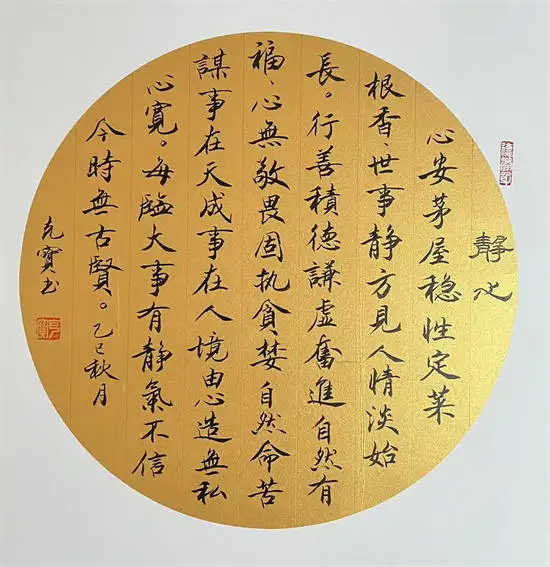 靜心
心安茅屋稳性定菜
根香、世事静方見人情淡始
長。行善積德謙虚奮進自然有
福、心無敬畏固执貪婪自然命苦
謀事在天成事在人境由心造無私
心寬。每臨大事有静氣不信
今時無古賢。乙巳秋月
克寶书